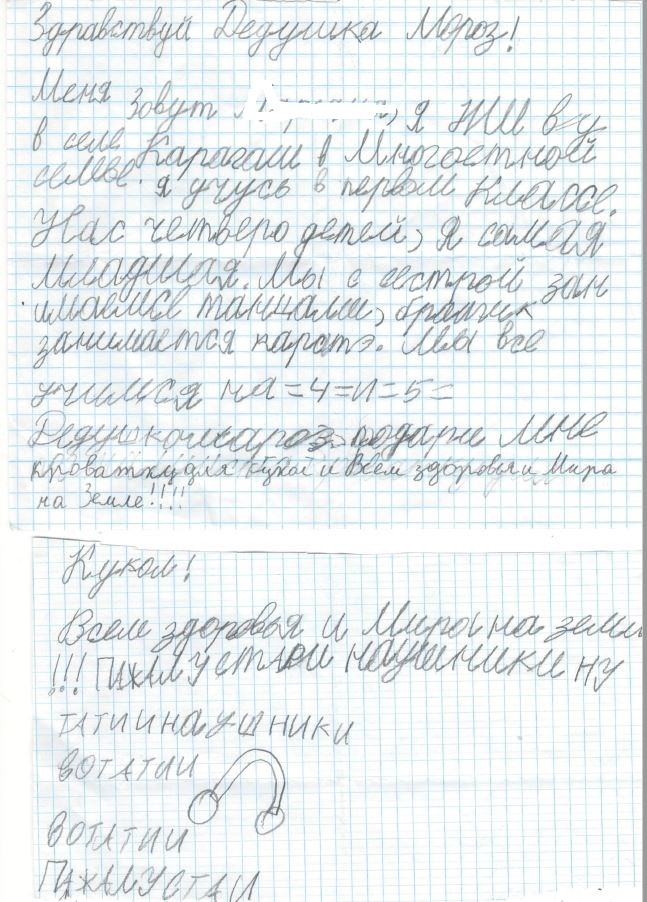 Здравствуй Дедушка Мороз!
Меня зовут я жи ву
в селе Карагаш в Многоетной
семье. я учусь в первом классе.
Нас четверо детей, я самая
младшая. Мы с сестрой зан
имаемся танцами, братик
занимается каратэ. Мы все
учимся на =4=и=5=
подари мне
кроватку для кукол и Всем здоровья и Мира
на Земле!!!!
Кукол!
Всем здоровья и Мира на земли
!!! ПАЖАЛУСТА и наушники ну
ТАТИ И НА УШНИКИ
ВОТАТИИ
ВОТАТИИ
ПАЖАЛУСТА И